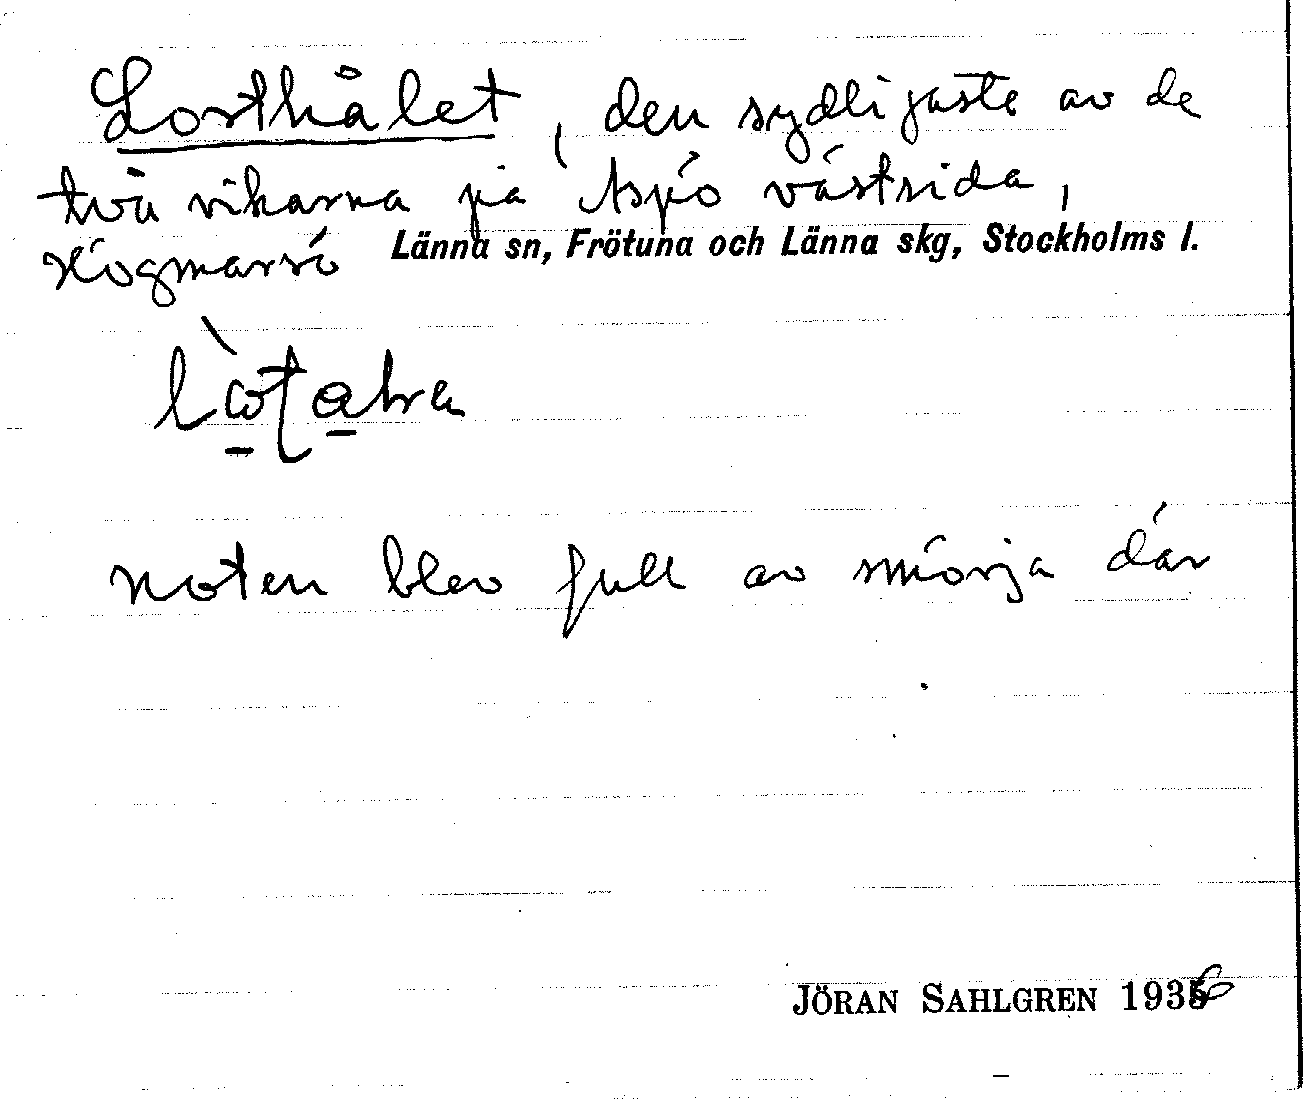 Lorthålet, den sydligaste av de
två vikarna på Aspö västsida,
Högmarsö Länna sn, Frötuna och Länna skg, Stockholms l.
noten blev full av smörja där
JÖRAN SAHLGREN 1936